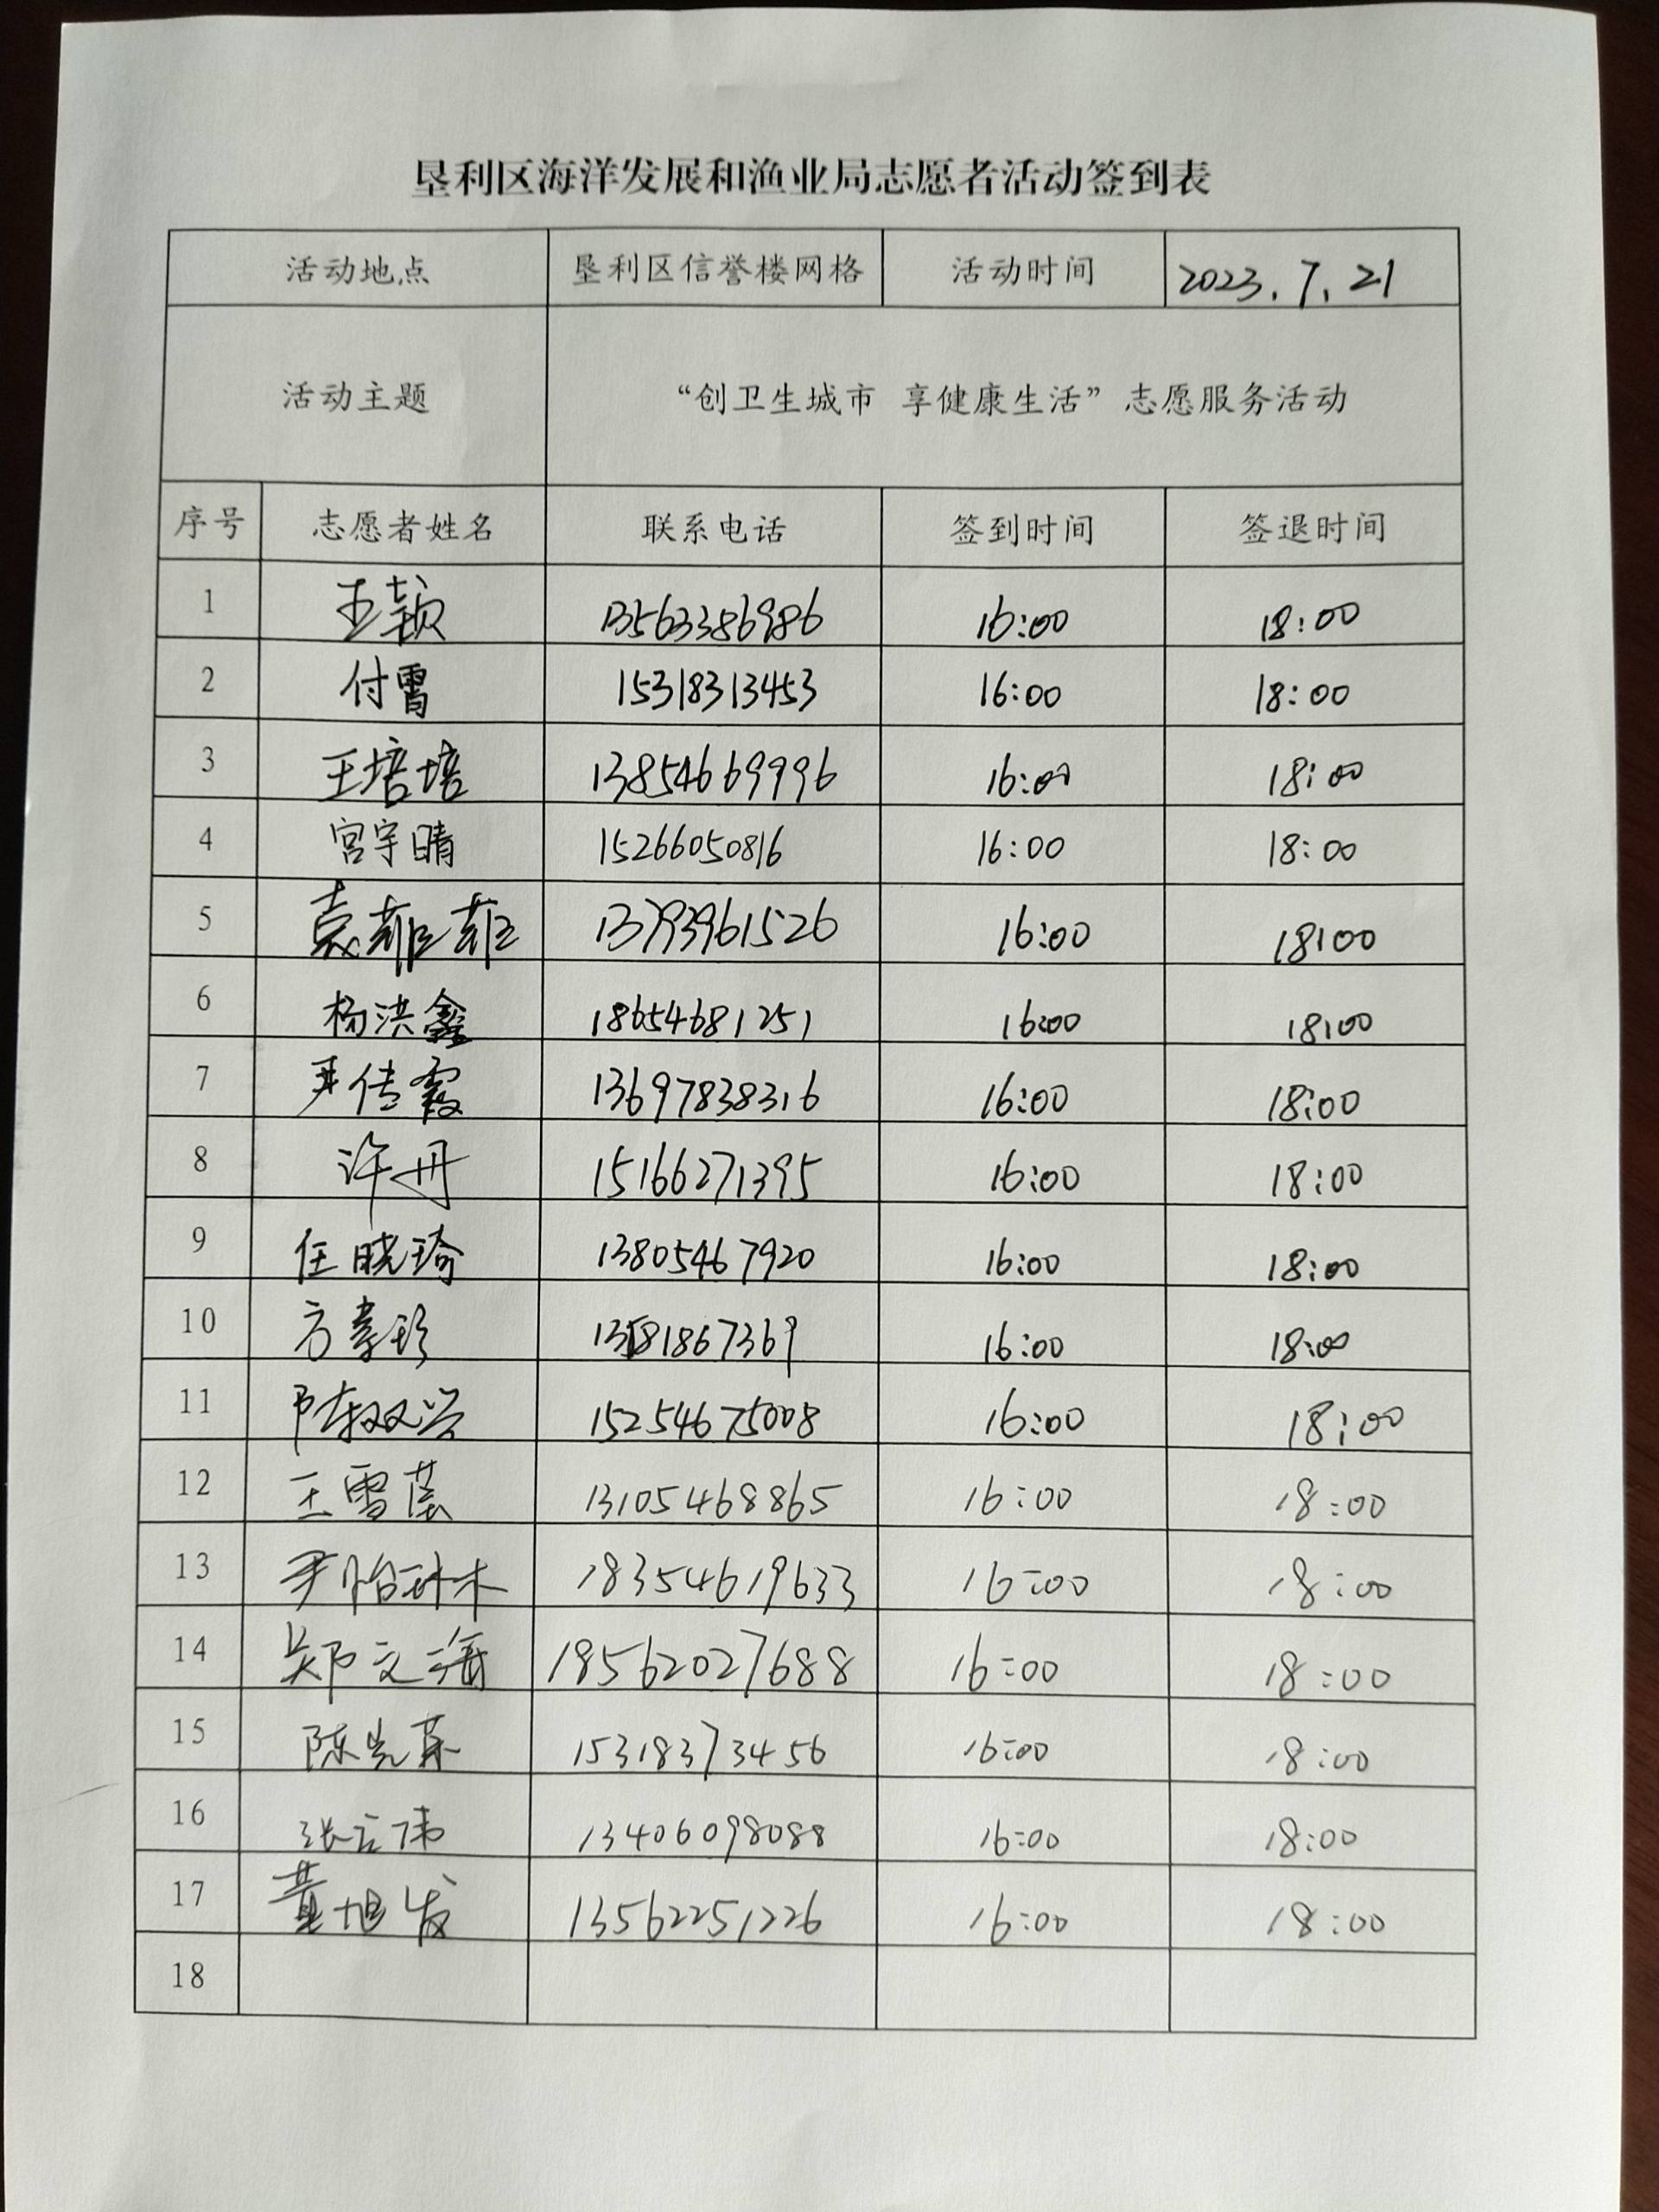 垦利区海洋发展和渔业局志愿者活动签到表
活动地点 垦利区信誉楼网格 活动时间 2023.7.21
活动主题 “创卫生城市 享健康生活”志愿服务活动
序号 志愿者姓名 联系电话 签到时间 签退时间
1 王颖 13563386986 16:00 18:00
2 付霄 15318313453 16:00 18:00
3 王培培 13854669996 16:00 18:00
4 宫宇晴 15266050816 16:00 18:00
5 袁菲菲 13793961526 16:00 18:00
6 杨洪鑫 18654681251 16:00 18:00
7 尹传霞 13697838316 16:00 18:00
8 许丹 15166271395 16:00 18:00
9 任晓瑜 13805467920 16:00 18:00
10 16:00 18:00
11 陈双兴 15254675008 16:00 18:00
12 王雪莹 13105468865 16:00 18:00
13 18354619633 16:00 18:00
14 郑文海 18562027688 16:00 18:00
15 陈光英 15318373456 16:00 18:00
16 13406098088 16:00 18:00
17 黄旭发 13562251226 16:00 18:00
18